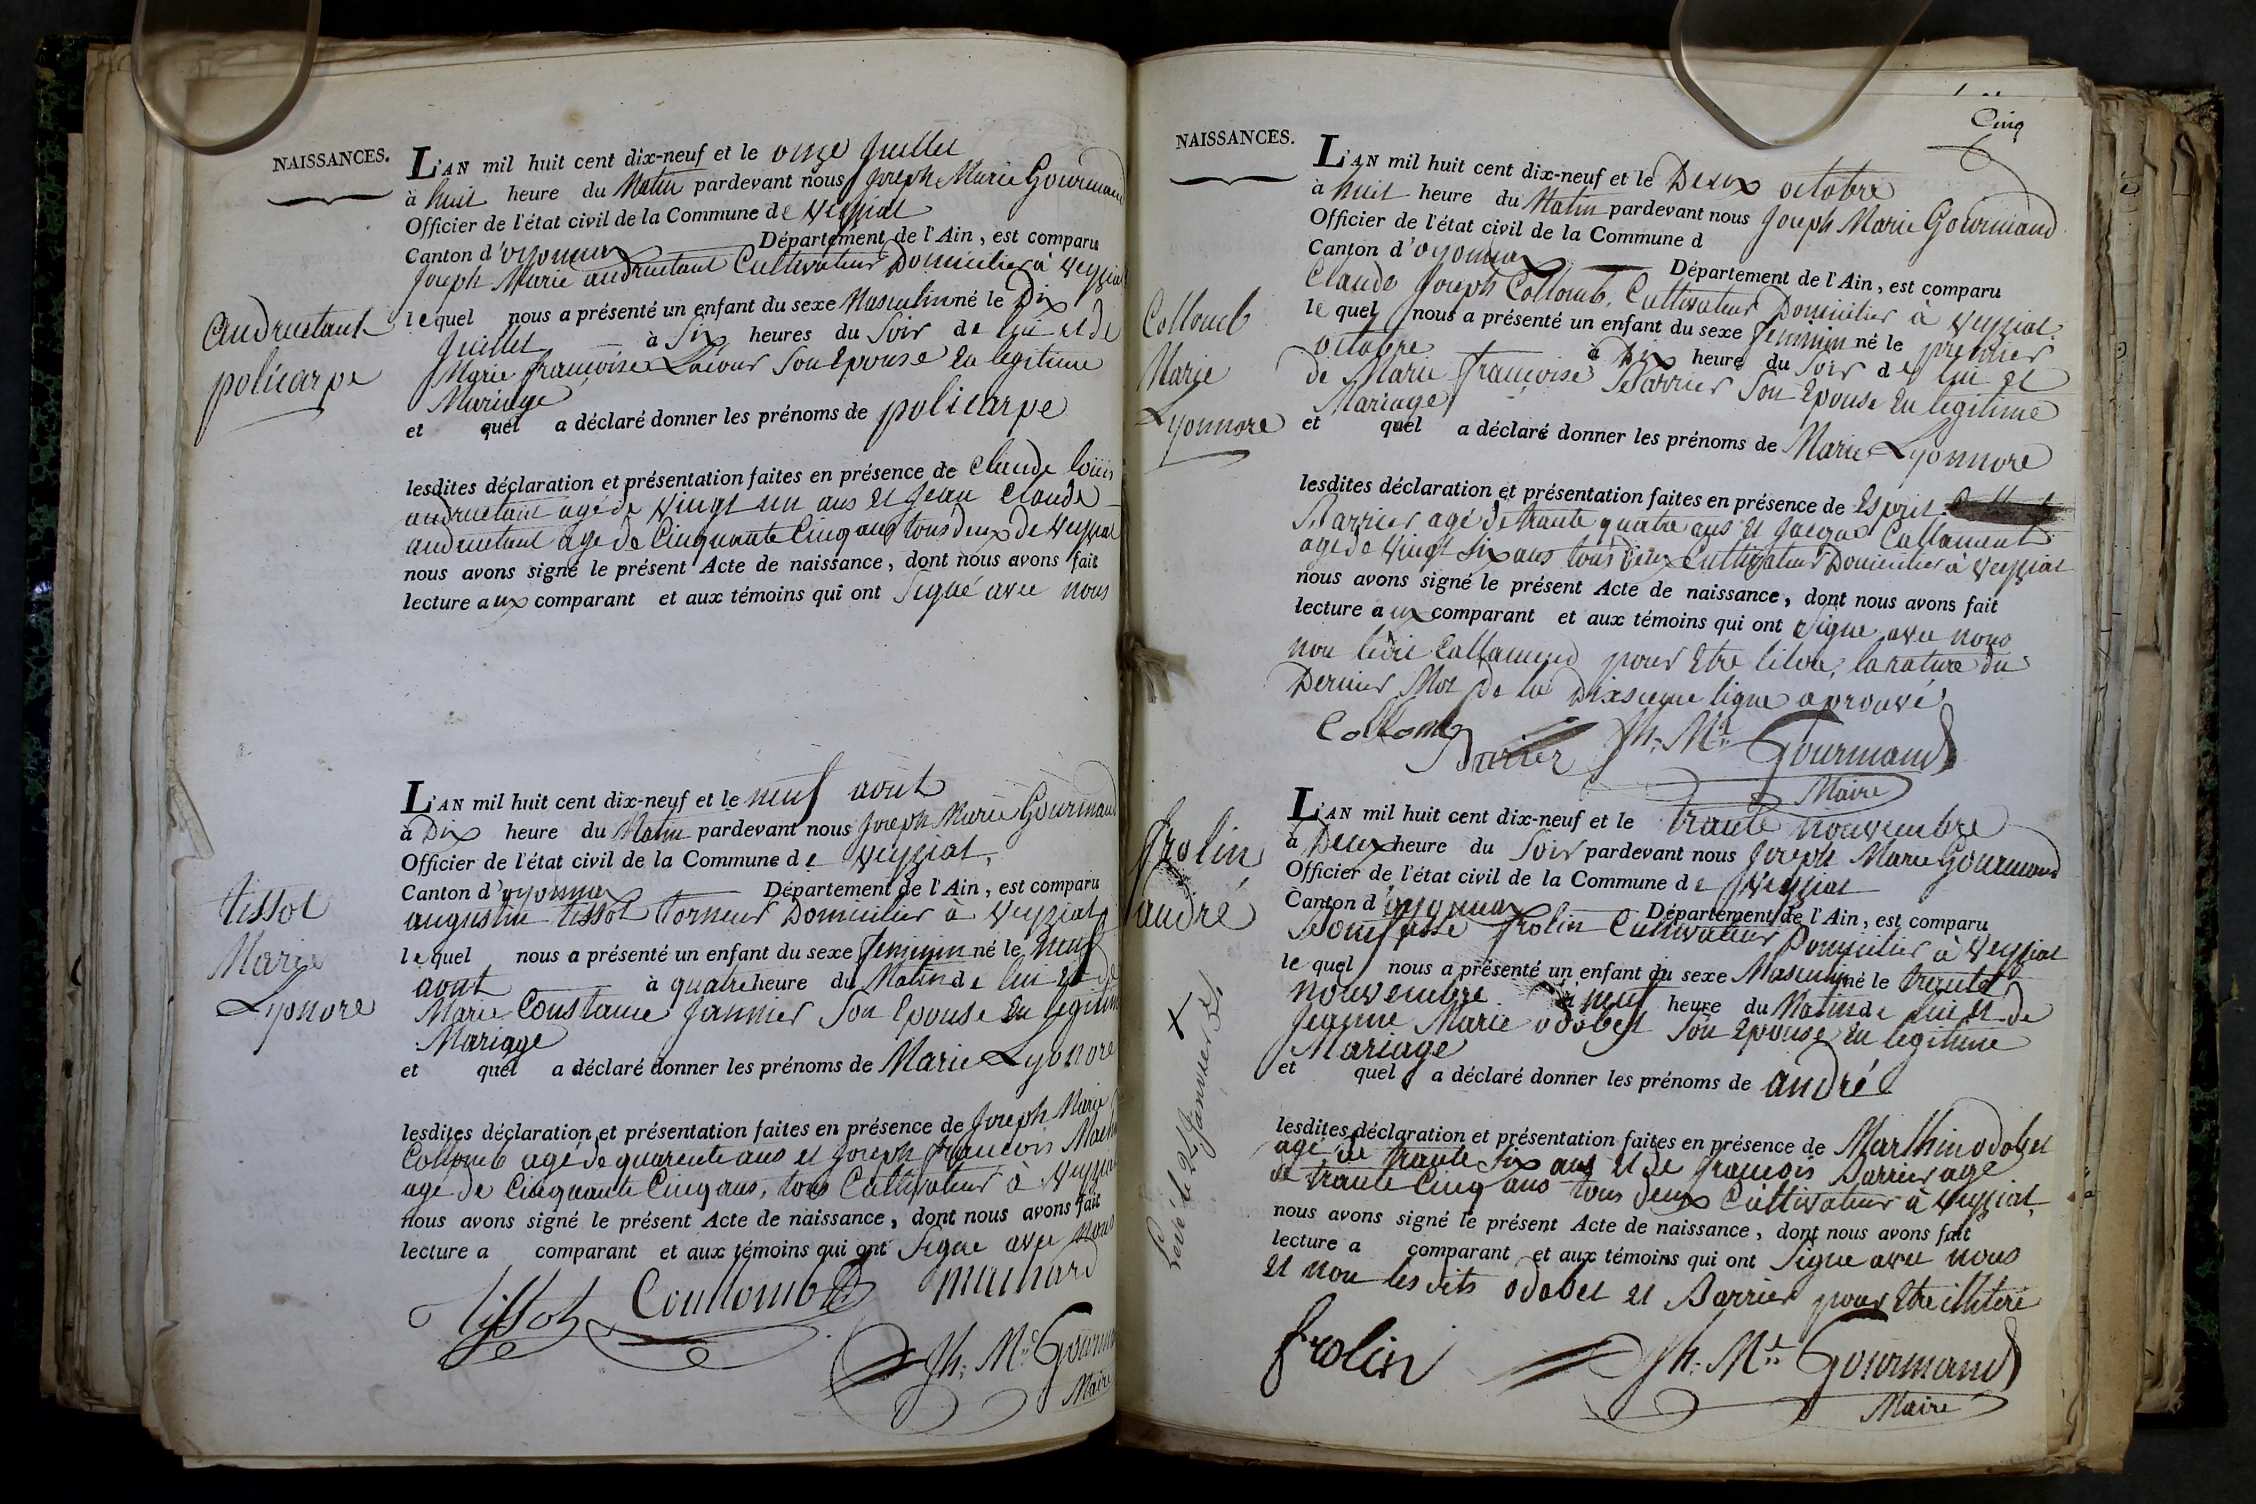 NAISSANCES.
L'AN mil huit cent dix-neuf et le onze juillet
à huit heure du Matin pardevant nous Joseph Marie Gourmand
Officier de l'état civil de la Commune de Veyziat
Canton d'oyonnax Département de l'Ain, est comparu
Joseph Marie andruetant Cultivateur Domicilier à Veyziat
lequel nous a présenté un enfant du sexe Masculin né le Dix
juillet à Six heures du Soir de lui et de
Marie françoise Lacour Son Epouse En legitime
Mariage
et quel a déclaré donner les prénoms de policarpe
andruetant
policarpe
lesdites déclaration et présentation faites en présence de Claude loüis
andruetant agé de Vingt un ans et Jean Claude
andruetant agé de Cinquante Cinq ans tous deux de Veyziat
nous avons signé le présent Acte de naissance, dont nous avons fait
lecture aux comparant et aux témoins qui ont Signé avec nous
L'AN mil huit cent dix-neuf et le neuf aout
à Dix heure du Matin pardevant nous Joseph Marie Gourmand
Officier de l'état civil de la Commune de Veyziat,
Canton d'oyonnax Département de l'Ain, est comparu
augustin tissot torneur Domicilier à Veyziat
lequel nous a présenté un enfant du sexe feminin né le neuf
aout à quatre heure du Matin de lui et de
Marie Constance Jannier Son Epouse En legitime
Mariage
et quel a déclaré donner les prénoms de Marie Lyonore
tissot
Marie
Lyonore
lesdites déclaration et présentation faites en présence de Joseph Marie
Collomb agé de quarente ans et Joseph françois
agé de Cinquante Cinq ans, tous Cultivateur à Veyziat
nous avons signé le présent Acte de naissance, dont nous avons fait
lecture a comparant et aux témoins qui ont Signé avec nous
tissot Coullomb machard
Jh. Mie Gourmand
Maire
Cinq
NAISSANCES.
L'AN mil huit cent dix-neuf et le Deux octobre
à huit heure du Matin pardevant nous Joseph Marie Gourmand
Officier de l'état civil de la Commune d
Canton d'oyonnax Département de l'Ain, est comparu
Claude Joseph Collomb, Cultivateur Domicilier à Veyziat
le quel nous a présenté un enfant du sexe feminin né le premier
octobre à Dix heure du Soir de lui et
de Marie françoise Barrier Son Epouse En legitime
Mariage
et quel a déclaré donner les prénoms de Marie Lyonnore
Collomb
Marie
Lyonnore
lesdites déclaration et présentation faites en présence de Esprit
Barrier agé de trante quatre ans et Jacque Callamend
agé de Vingt Six ans tous deux Cultivateur Domicilier à Veyziat
nous avons signé le présent Acte de naissance, dont nous avons fait
lecture aux comparant et aux témoins qui ont Signé avec nous
non ledit Callamend pour Etre
Dernier Mot de la Dixsieme ligne aprouvé
Collomb Barrier Jh. Mie Gourmand
Maire
L'AN mil huit cent dix-neuf et le trante nouvembre
à Deux heure du Soir pardevant nous Joseph Marie Gourmand
Officier de l'état civil de la Commune de Veyziat
Canton d'oyonnax Département de l'Ain, est comparu
Boniffasse frolin Cultivateur Domicilier à Veyziat
le quel nous a présenté un enfant du sexe Masculin né le trente
nouvembre à neuf heure du Matin de lui et de
Jeanne Marie odobet Son Epouse En legitime
Mariage
et quel a déclaré donner les prénoms de andré
frolin
andré
lesdites déclaration et présentation faites en présence de Marthin odobet
agé de trante Six ans et de françois Barrier agé
de trante Cinq ans tous deux Cultivateur à Veyziat
nous avons signé le présent Acte de naissance, dont nous avons fait
lecture a comparant et aux témoins qui ont Signe avec nous
et non les dits odobet et Barrier pour Etre illiteré
frolin Jh. Mie Gourmand
Maire